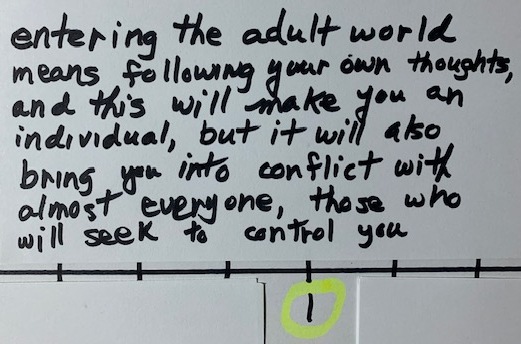 entering the adult world
means following your own thoughts,
and this will make you an
individual, but it will also
bring you into conflict with
almost everyone, those who
will seek to control you
1